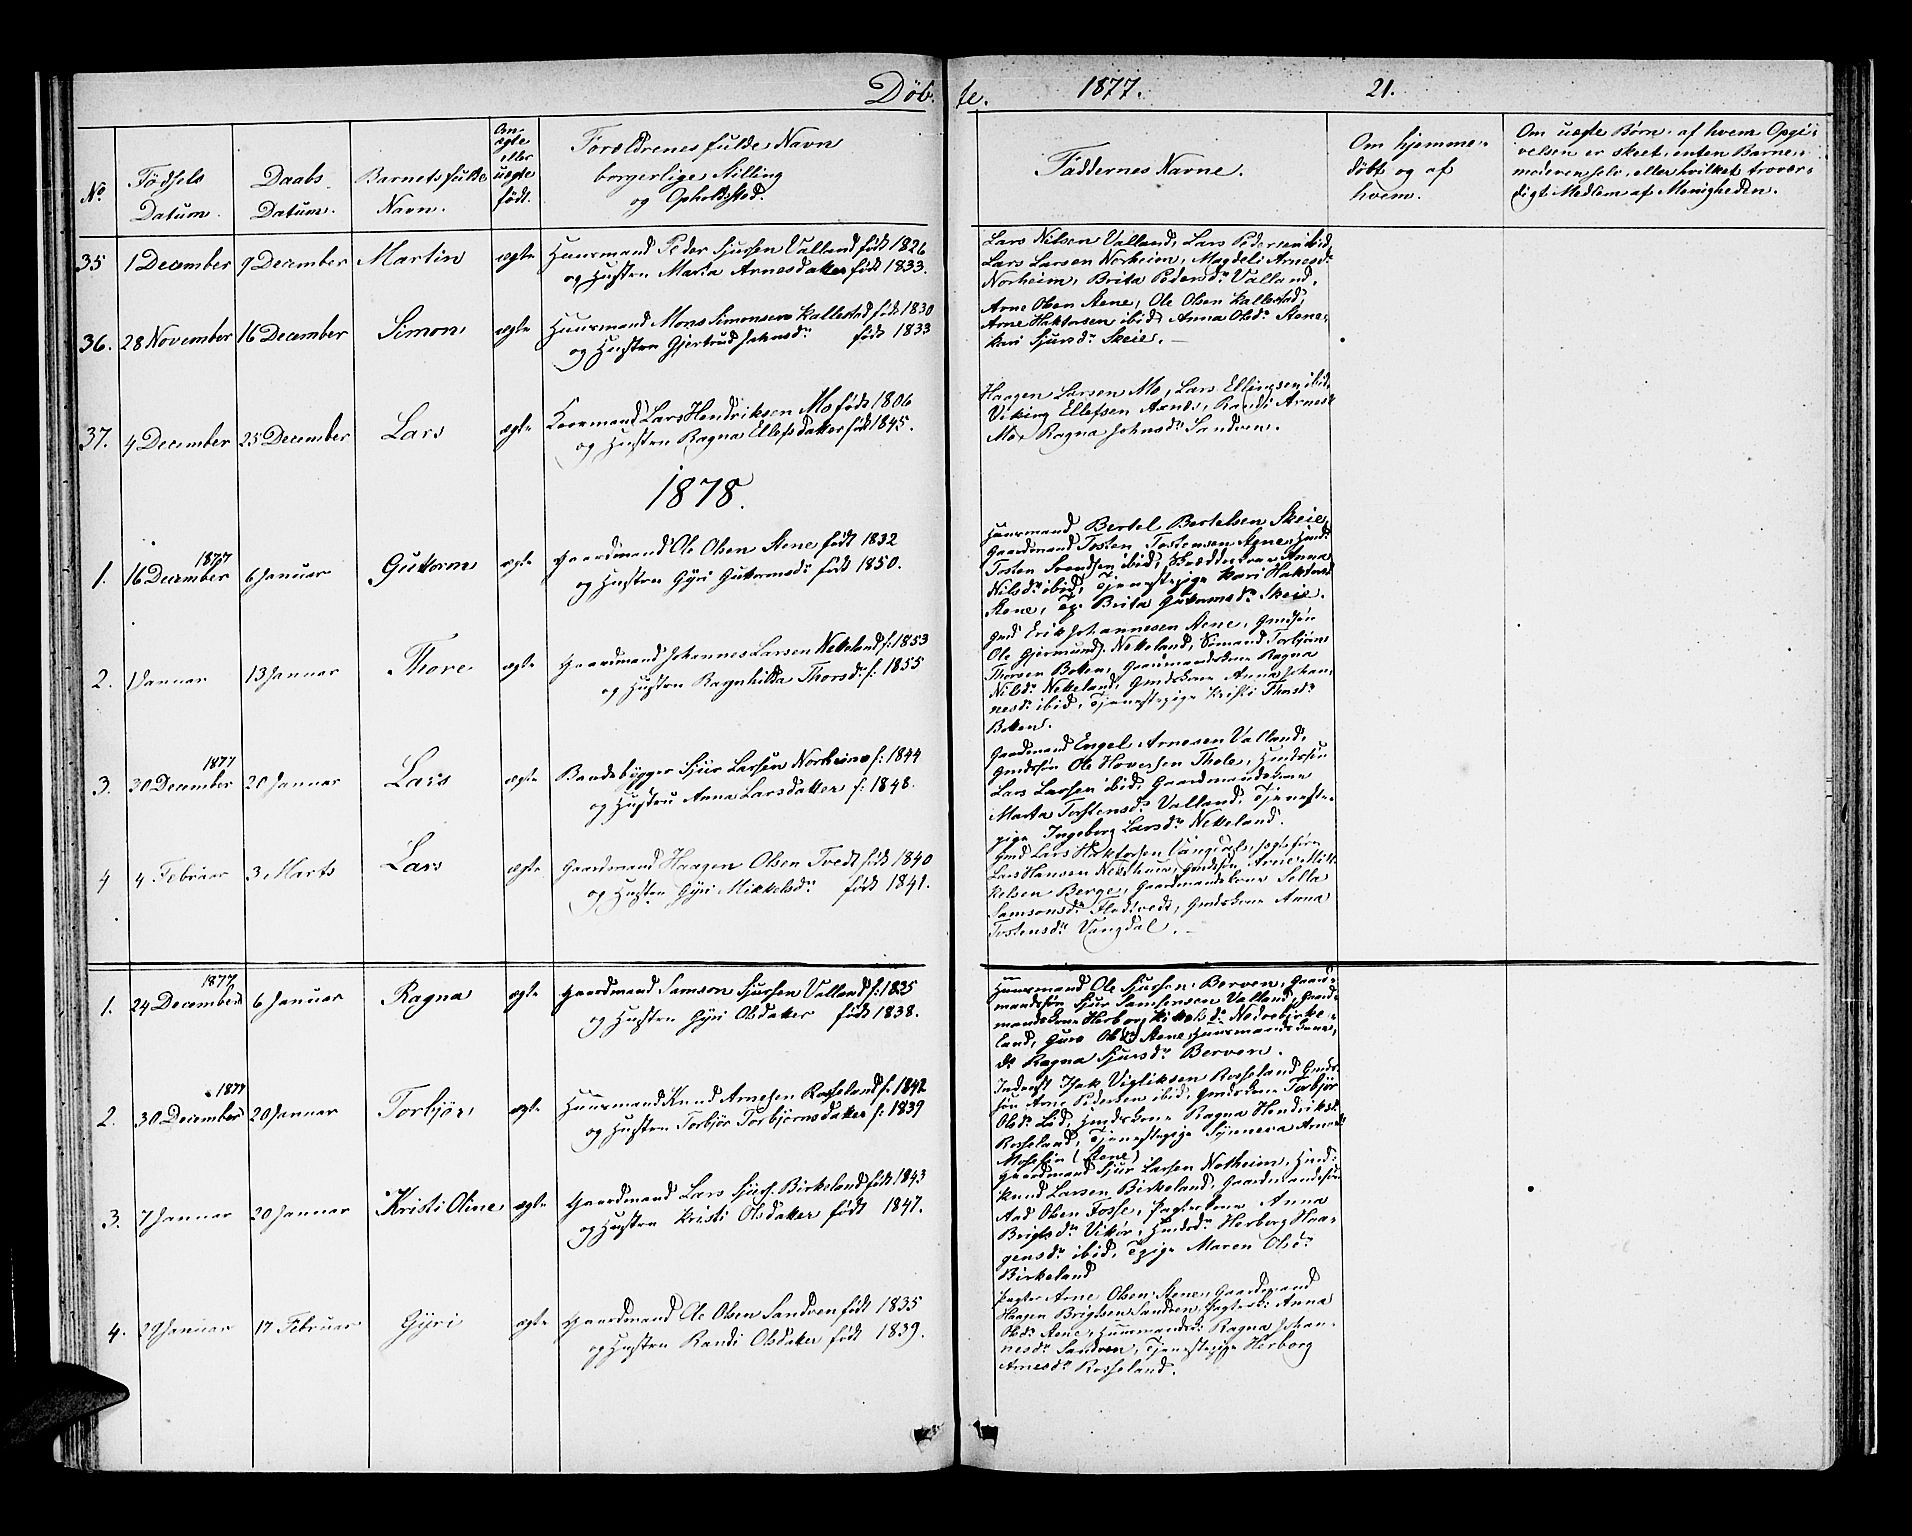 Døb- te. 1877. 21.
No
Fødsels Datum.
Daabs Datum.
Barnets fulde Navn.
Om ægte eller uægte født.
Forældrenes fulde Navn borgerlige Stilling og Opholdssted.
Faddernes Navne.
Om hjemmedøbt og af hvem.
Om uægte Børn, af hvem Opgivelsen er skeet, enten Barnemoderen selv, eller hvilket troværdigt Medlem af Menigheden.
35 1 December 9 December Martin ægte Huusmand Peder Sjursen Valland født 1826
og Hustru Marta Arnesdatter født 1833.
Lars Nilsen Valland, Lars Pedersen ibid,
Lars Larsen Norheim, Magdeli Arnesdr
Norheim, Brita Pedersdr Valland.
36. 28 November 16 December Simon ægte Huusmand Mons Simonsen Kallestad født 1830
og Hustru Gjertrud Johnsdr født 1833
Arne Olsen Aene, Ole Olsen Kallestad,
Arne Haktorsen ibid, Anna Olsdr Aene,
Kari Sjursdr Skeie.
37. 4 December 25 December Lars ægte Lars Hendriksen Mo født 1806
og Hustru Ragna Ellefsdatter født 1845.
Haagen Larsen Mo, Lars Ellingsen ibid,
Viking Ellefsen Axnes, Randi Arnesdr
Mo, Ragna Johnsdr Sandven.
1878.
1. 1877 16 December 6 Januar Gutorm ægte Gaardmand Ole Olsen Aene født 1832
og Hustru Gyri Gutormsdr født 1850.
Huusmand Bertel Bertelsen Skeie,
Gaardmand Tosten Tostensen Aene,
Tosten Svendsen ibid, Anna
Nilsdr ibid, Tjenestepige Kari Haktorsdr
Aene, Tp. Brita Gutormsdr Skeie.
2. 1 Januar 13 Januar Thore ægte Gaardmand Johannes Larsen Netteland f: 1853
og Hustru Ragnhilda Thorsdr f: 1855
Gmd Erik Johannesen Aene, Gmdsøn
Ole Gjermunds. Netteland, Sømand Torbjørn
Thorsen Botten, Gaardmandskone Ragna
Nilsdr Netteland, Gmdskone Anna Johan-
nesdr ibid, Tjenestepige Kristi Thorsdr
Botten.
3. 1877 30 December 20 Januar Lars ægte Baadebygger Sjur Larsen Norheim f: 1844
og Hustru Anna Larsdatter f: 1848.
Gaardmand Engel Arnesen Valland,
Gmdsøn Ole Haversen Thole, Hmdssøn
Lars Larsen ibid, Gaardmandskone
Marta Torstensdr Valland, Tjeneste-
pige Ingeborg Larsdr Netteland.
4 4 Februar 3 Marts Lars ægte Gaardmand Haagen Olsen Tvedt født 1840
og Hustru Gyri Mikkelsdr født 1841.
Gmd Lars Haktorsen Vangdal,
Lars Hansen Gmdsøn Arne Mik-
kelsen Berge, Gaardmandskone Sella
Samsonsdr Flotvedt, Gmdskone Anna
Tostensdr Vangdal.
1. 1877 24 December 6 Januar Ragna ægte Gaardmand Samson Sjursen Valland f: 1835
og Hustru Gyri Olsdatter født 1838.
Huusmand Ole Sjursen Berven, Gaard-
mandssøn Sjur Samsonsen Valland, Gaard-
mandskone Herborg Nedrebirke-
land, Guro Olsdr Aene, Huusmandskone,
Ragna Sjursdr Berven.
2. 1877 30 December 20 Januar Torbjør ægte Huusmand Knud Arnesen Rosseland f: 1842
og Hustru Torbjør Torbjørnsdatter f: 1839
Inderst Isak Vigliksen Rosseland, Gmds-
søn Arne Pedersen ibid, Gmdskone Torbjør
Olsdr Lid, Hmdskone Ragna Hendriksdr
Rosseland, Tjenestepige Synneva Arnesdr
(Aene)
3. 7 Januar 20 Januar Kristi Oline ægte Gaardmand Lars Sjurs. Birkeland født 1843
og Hustru Kristi Olsdatter født 1847.
Gaardmand Sjur Larsen Notheim, Hmd
Knud Larsen Birkeland, Gaardmandssøn
Aad Olsen Fosse, Pagterkone Anna
Brigtsdr Vikør, Herborg Haa-
gensdr ibid, Tpige Maren Olsdr
Birkeland
4. 29 Januar 17 Februar Gyri ægte Gaardmand Ole Olsen Sandven født 1835
og Hustru Randi Olsdatter født 1839.
Pagter Arne Olsen Aene, Gaardmand
Haagen Brigtsen Sandven, Pagtersk. Anna
Olsdr Aene, Ragna Johan-
nesdr Sandven, Tjenestepige Herborg
Arnesdr Rosseland.